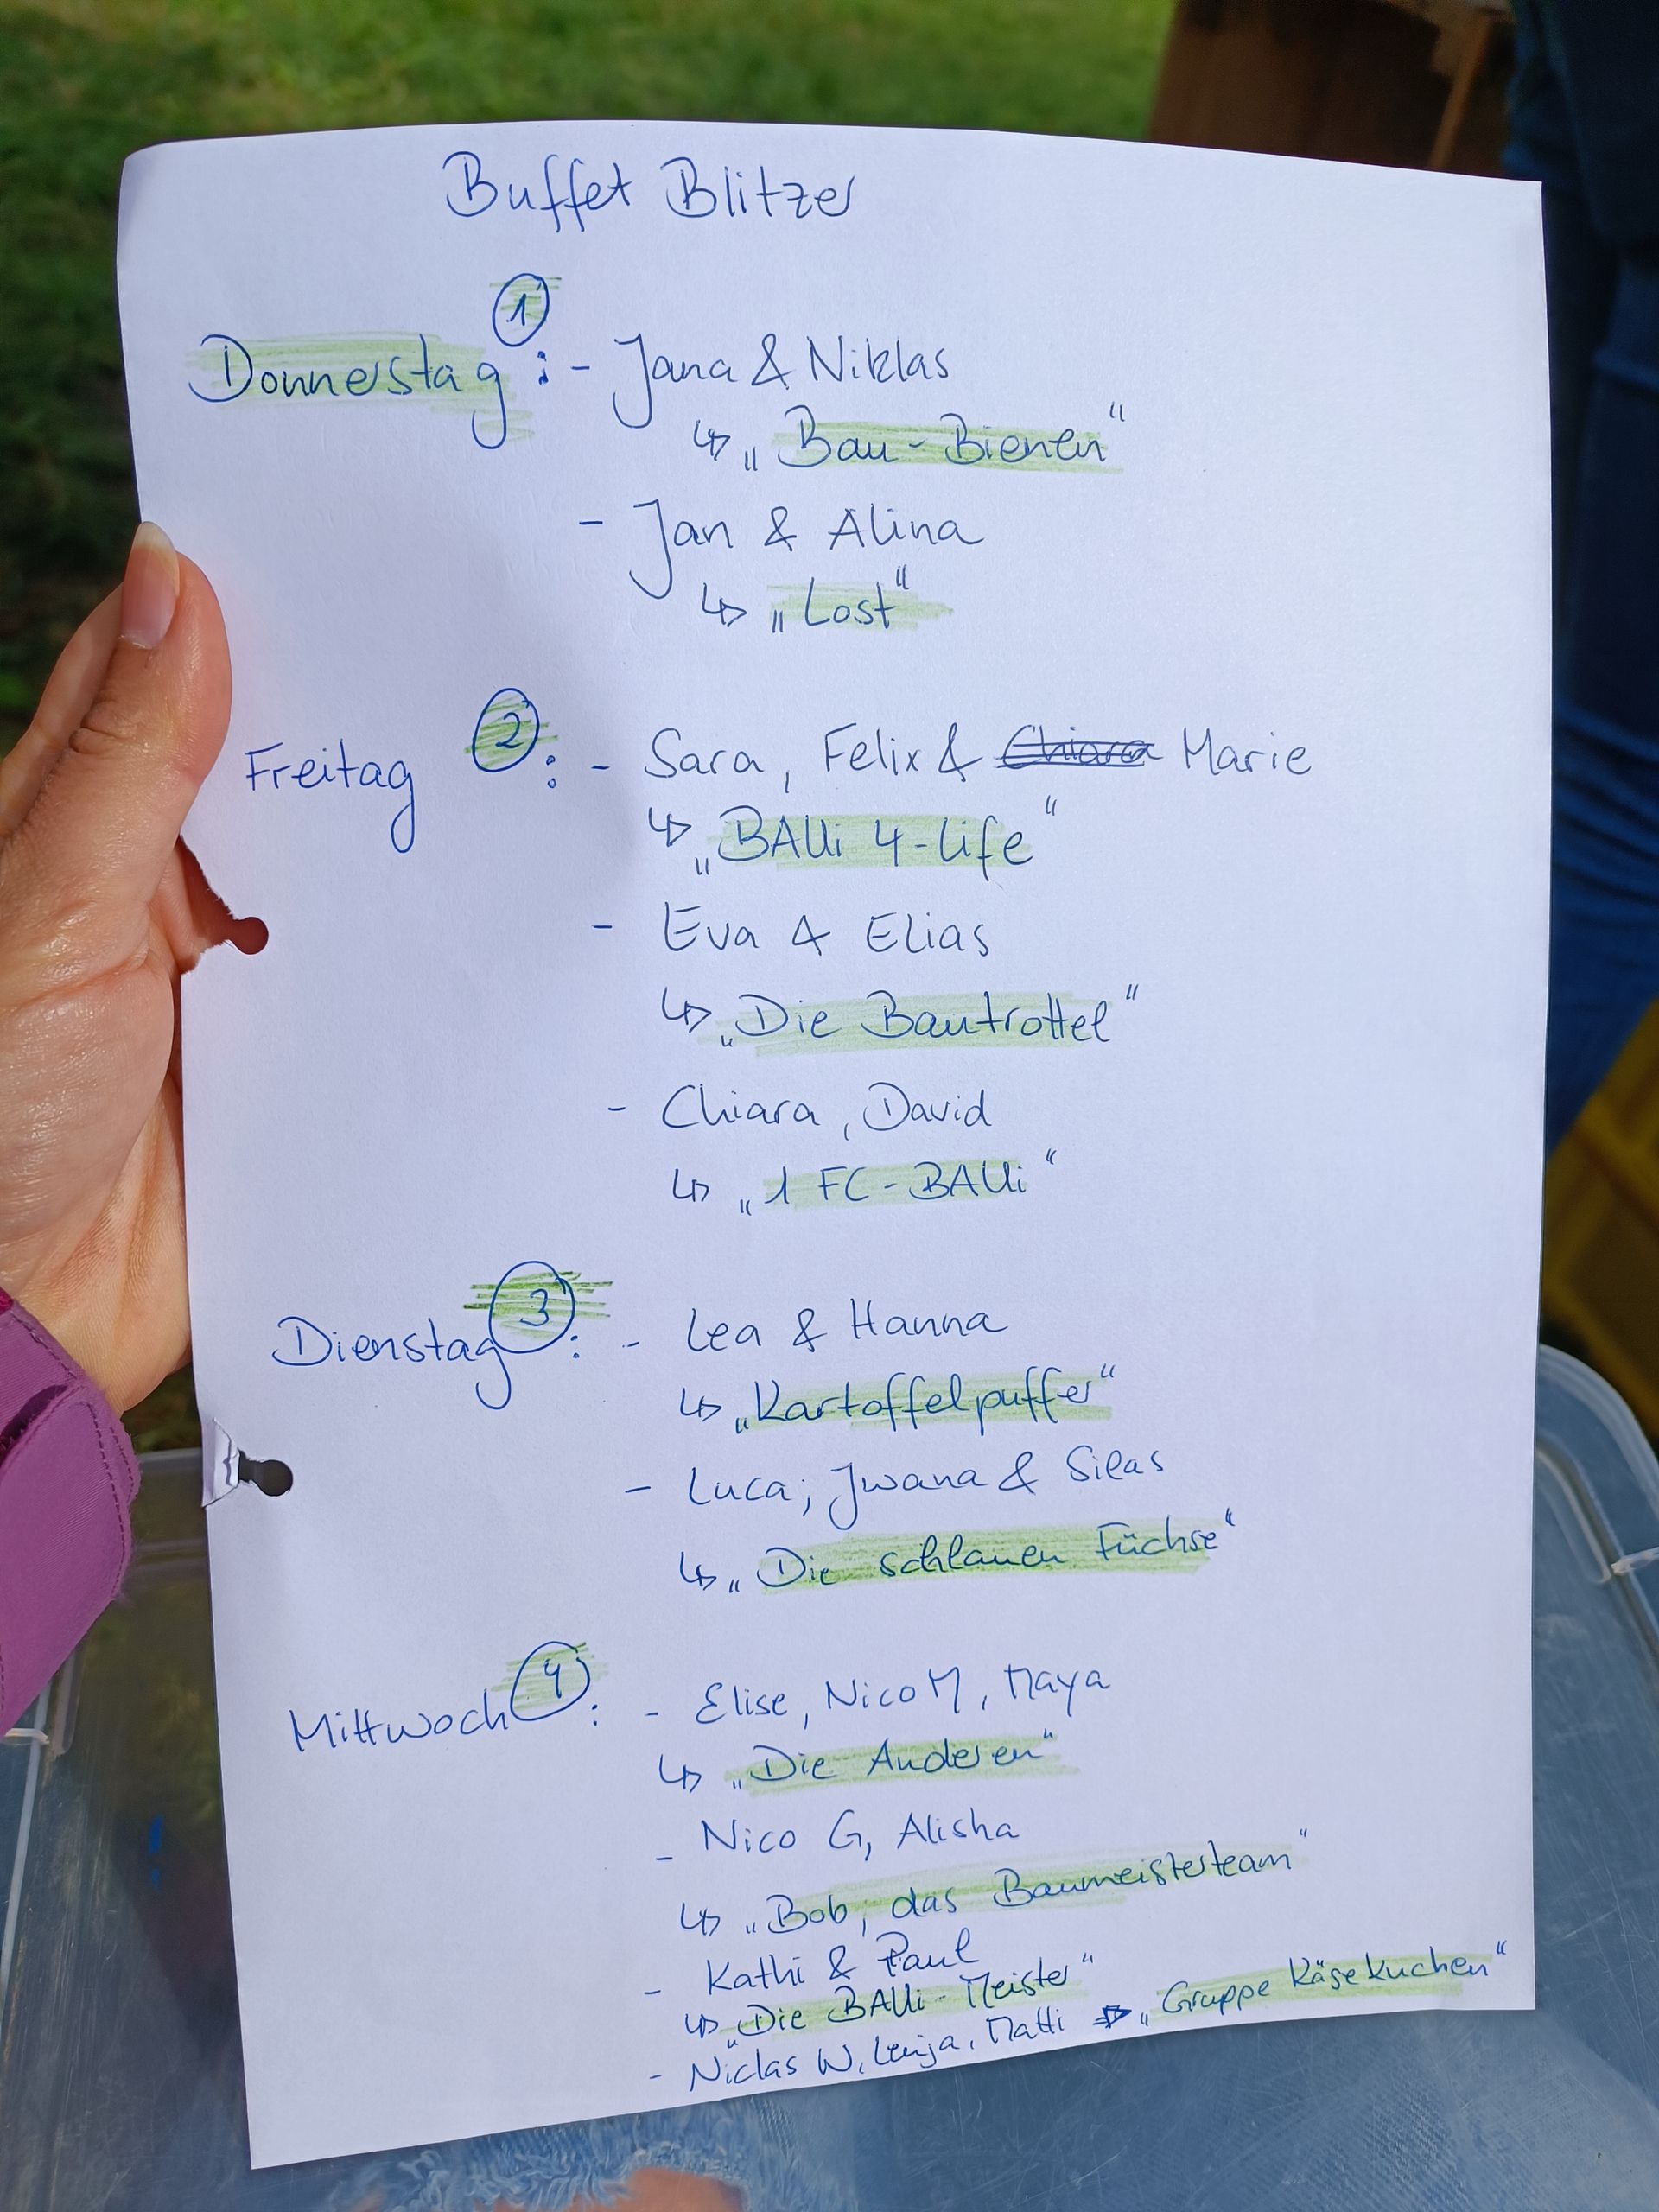 Buffet Blitzer
Donnerstag ①: - Jana & Niklas
↳ „Bau-Bienen“
- Jan & Alina
↳ „Lost“
Freitag ②: - Sara, Felix & ~~Chiara~~ Marie
↳ „BAUi 4-life“
- Eva & Elias
↳ „Die Bautrottel“
- Chiara, David
↳ „1 FC-BAUi“
Dienstag ③: - Lea & Hanna
↳ „Kartoffelpuffer“
- Luca; Jwana & Silas
↳ „Die schlauen Füchse“
Mittwoch ④: - Elise, Nico M, Maya
↳ „Die Anderen“
- Nico G, Alisha
↳ „Bob, das Baumeisterteam“
- Kathi & Paul
↳ „Die BAUi-Meister“
- Niclas W, Lenja, Matti → „Gruppe Käsekuchen“